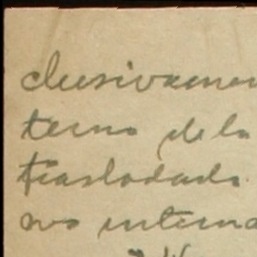 clusivamen
terno de la
trasladado
no interna